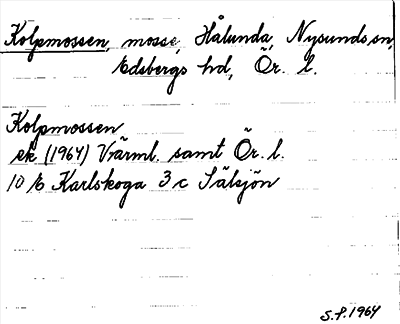 Kolpmossen, mosse, Hålunda, Nysunds sn,
Edsbergs hd, Ör. l.
Kolpmossen
ek (1964) Värml. samt Ör. l.
10 E Karlskoga 3 c Sälsjön
S.P. 1964